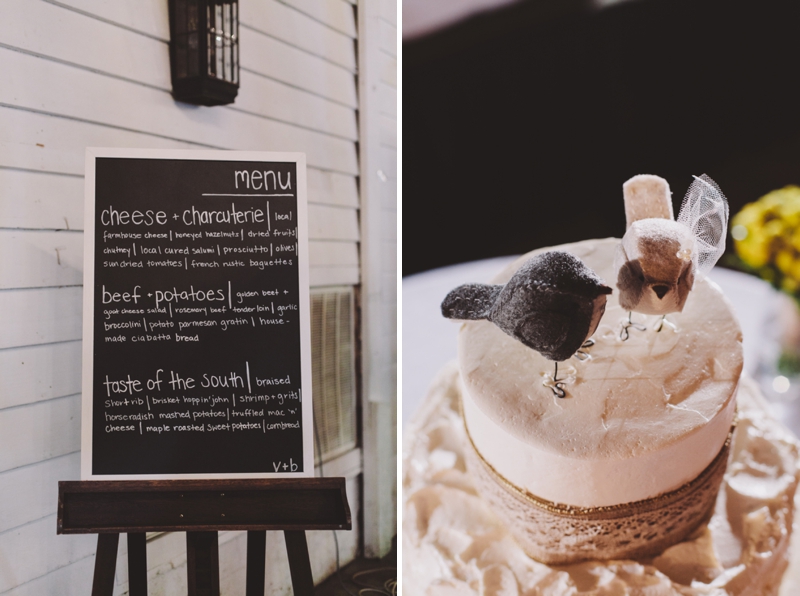 menu
cheese + charcuterie | local
farmhouse cheese | honeyed hazelnuts | dried fruits |
chutney | local cured salumi | prosciutto | olives |
sun dried tomatoes | french rustic baguettes
beef + potatoes | golden beet +
goat cheese salad | rosemary beef tenderloin | garlic
broccolini | potato parmesan gratin | house-
made ciabatta bread
taste of the south | braised
short rib | brisket hoppin' john | shrimp + grits |
horseradish mashed potatoes | truffled mac 'n'
cheese | maple roasted sweet potatoes | cornbread
v+b